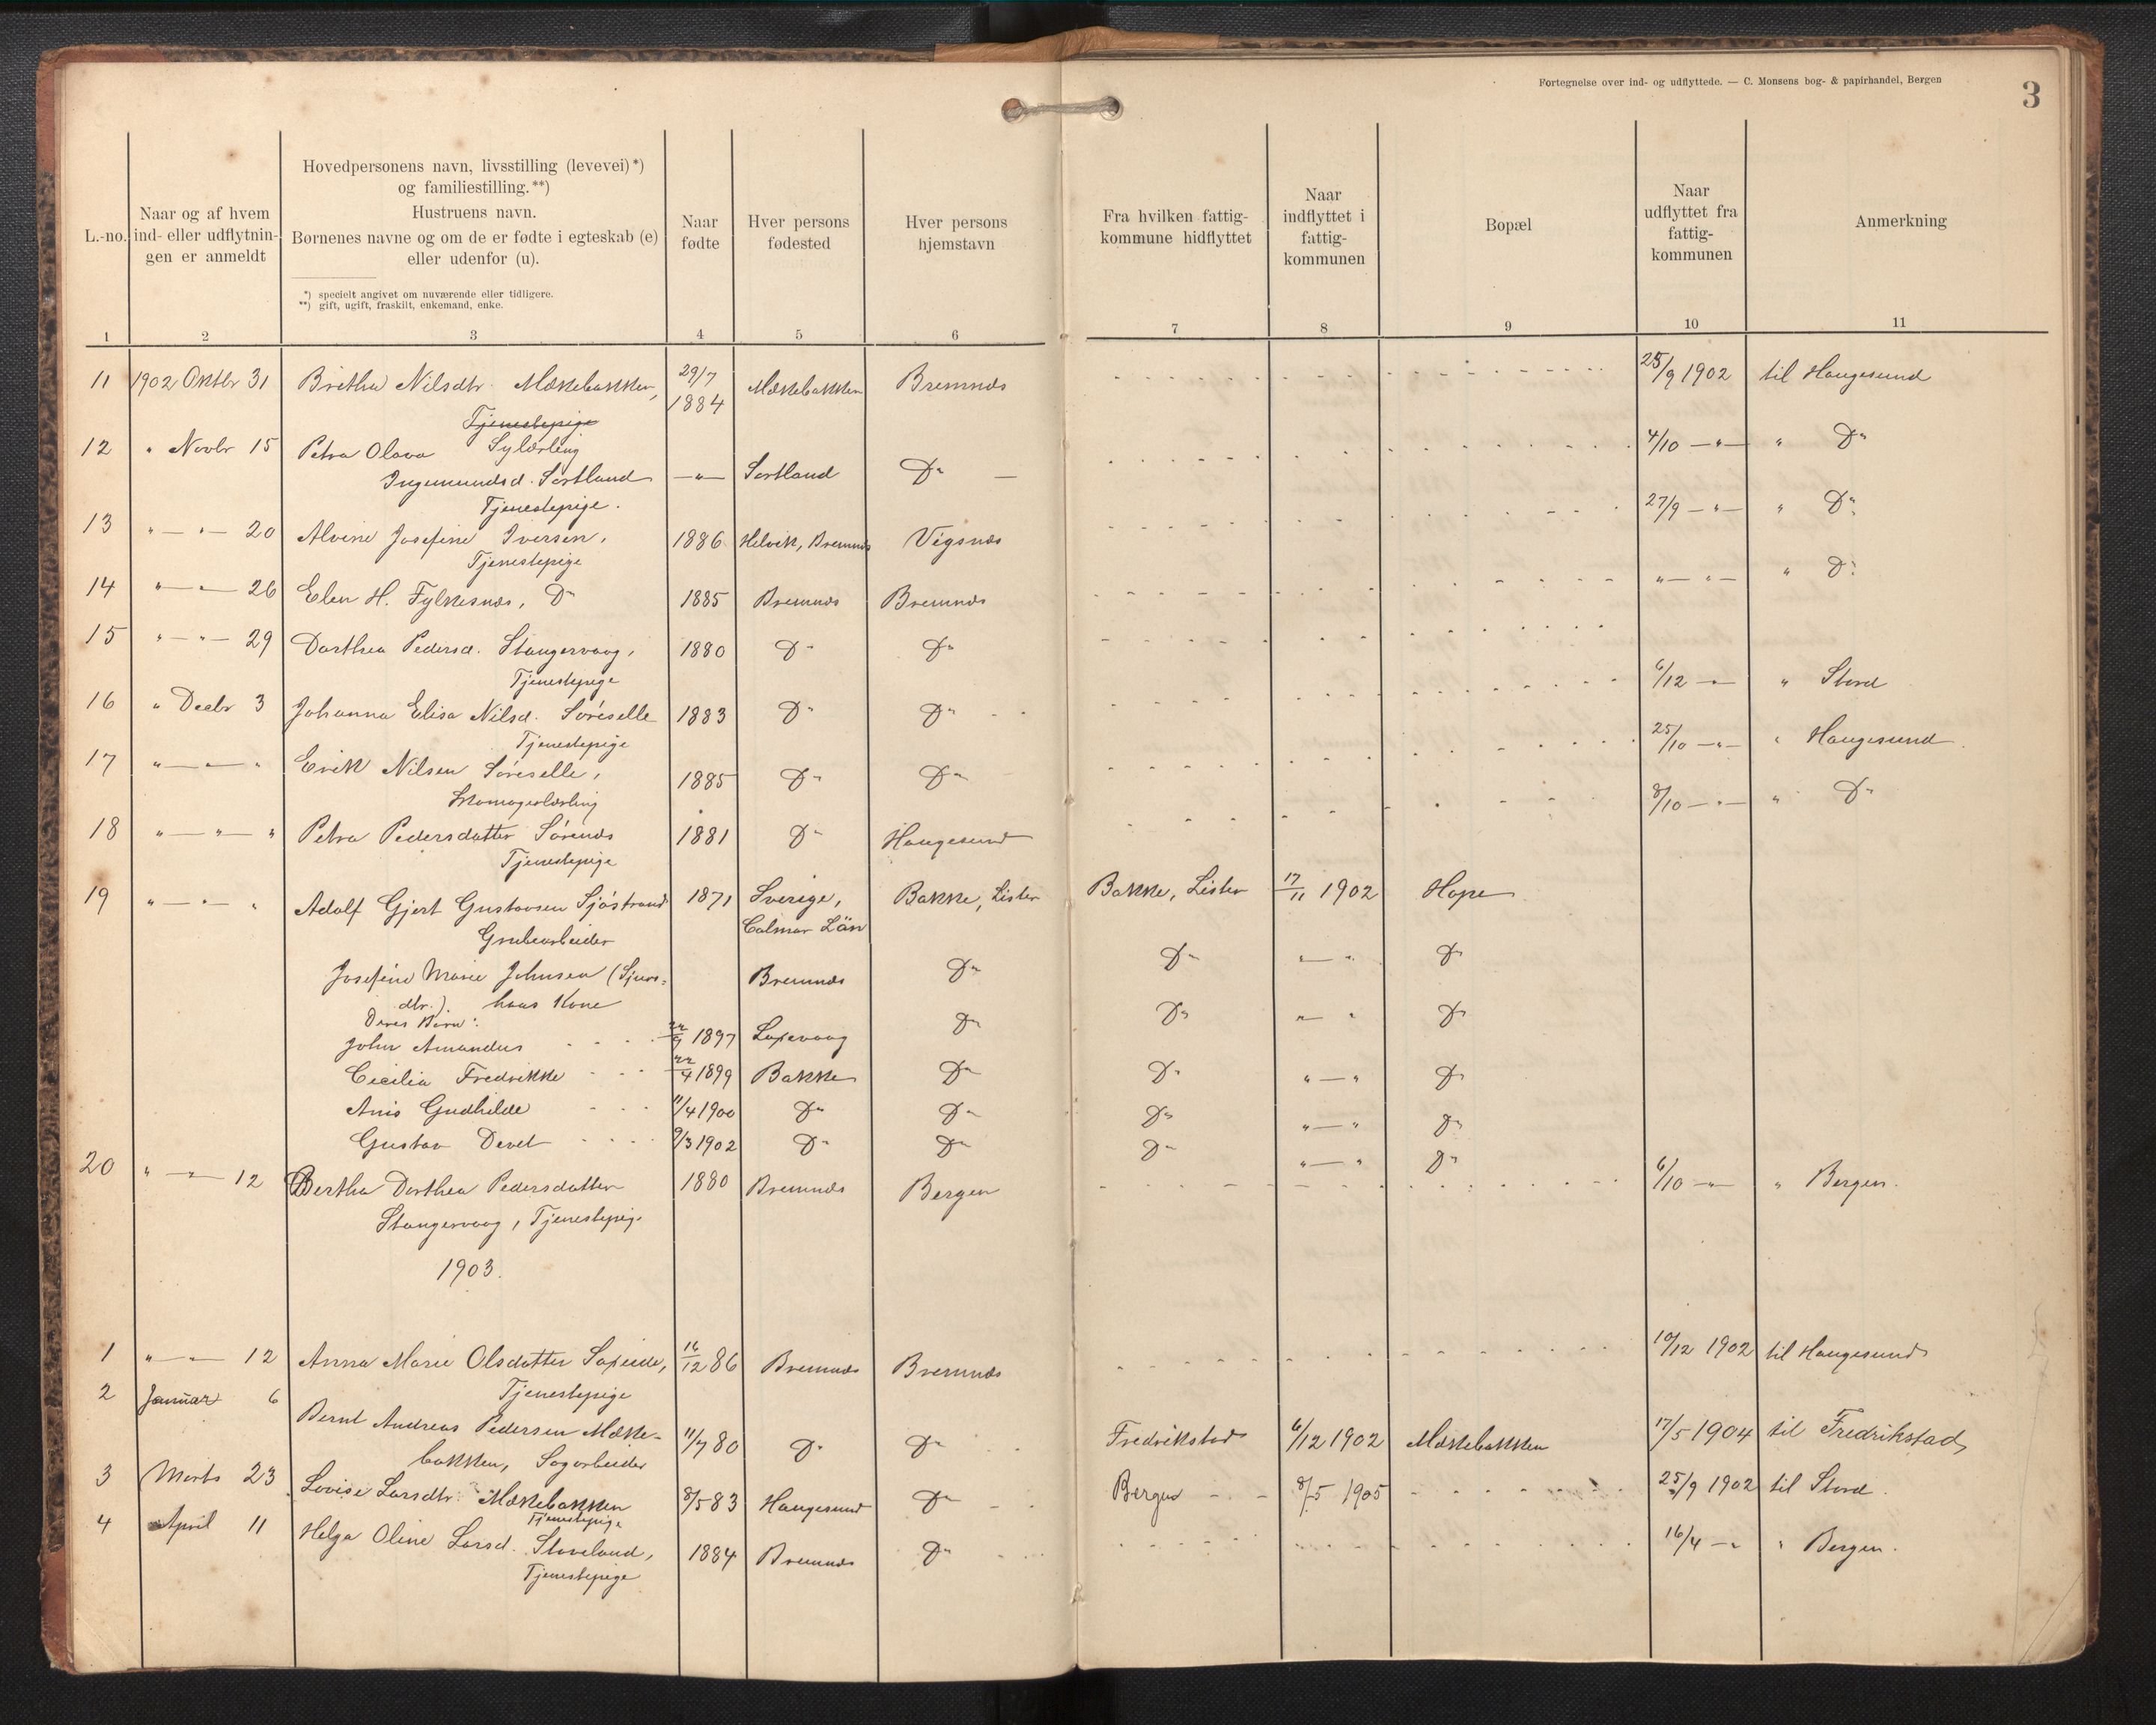 Fortegnelse over ind- og udflyttede. — C. Monsens bog- & papirhandel, Bergen
3
L.-no.
Naar og af hvem ind- eller udflytningen er anmeldt
Hovedpersonens navn, livsstilling (levevei)*)
og familiestilling.**)
Hustruens navn.
Børnenes navne og om de er fødte i egteskab (e)
eller udenfor (u).
*) specielt angivet om nuværende eller tidligere.
**) gift, ugift, fraskilt, enkemand, enke.
Naar fødte
Hver persons fødested
Hver persons hjemstavn
Fra hvilken fattigkommune hidflyttet
Naar indflyttet i fattigkommunen
Bopæl
Naar udflyttet fra fattigkommunen
Anmerkning
1 2 3 4 5 6 7 8 9 10 11
11 1902 Oktbr 31 Britha Nilsdtr. Mækkebakken, 29/7 1884 Mækkebakken Bremnæs 25/9 1902 til Haugesund
Tjenestepige
12 " Novbr 15 Petra Olava Sylærling 4/10 —"— " Do
Ingemundsd. Sortland —"— Sortland Do
Tjenestepige.
13 "—"— 20 Alvine Josefine Iversen, 1886 Helvik, Bremnæs Vigsnæs 27/9 —"— " Do
Tjenestepige
14 "—"— 26 Elen H. Fylkesnæs, Do 1885 Bremnæs Bremnæs "—"— " Do
15 "—"— 29 Dorthea Pedersd. Stangervaag, 1880 Do Do
Tjenestepige
16 " Decbr 3 Johanna Elisa Nilsd. Søreselle 1883 Do Do 6/12 —"— " Stord
Tjenestepige
17 "—"—" Erik Nilsen Søreselle, 1885 Do Do 25/10 —"— " Haugesund.
Skomagerlærling
18 "—"—" Petra Pedersdatter Sørenæs 1881 Do Haugesund 8/10 —"— " Do
Tjenestepige
19 "—"—" Adolf Gjert Gustavsen Sjøstrand 1871 Sverige, Bakke, Lister Bakke, Lister 17/11 1902 Hope
Grubearbeider Calmar Län
Josefine Marie Johnsen (Sjurs- Bremnæs Do Do "—" Do
dtr.). hans Kone
Deres Børn:
John Amandus 1897 Laxevaag Do Do "—" Do
Cecilia Fredrikke 22/4 1899 Bakke Do Do "—" Do
Anis Gudhilde 11/4 1900 Do Do Do "—" Do
Gustav Devet 9/3 1902 Do Do Do "—" Do
20 "—"— 12 Bertha Dorthea Pedersdatter 1880 Bremnæs Bergen 6/10 —"— " Bergen.
Stangervaag, Tjenestepig.
1903.
1 "—"— 12 Anna Marie Olsdatter 16/12 86 Bremnæs Bremnæs 10/12 1902 til Haugesund
Tjenestepige
2 Januar 6 Bernt Andreas Pedersen Mække- 11/7 80 Do Do Fredrikstad 6/12 1902 Mækkebakken 17/5 1904 til Fredrikstad
bakken, Sagarbeider
3 Marts 23 Lovise Larsdtr. Mækkebakken 8/5 83 Haugesund Do Bergen 8/5 1905 25/9 1902 til Stord.
Tjenestepige
4 April 11 Helga Oline Larsd. Staveland, 1884 Bremnæs Do 16/4 —"— " Bergen.
Tjenestepige